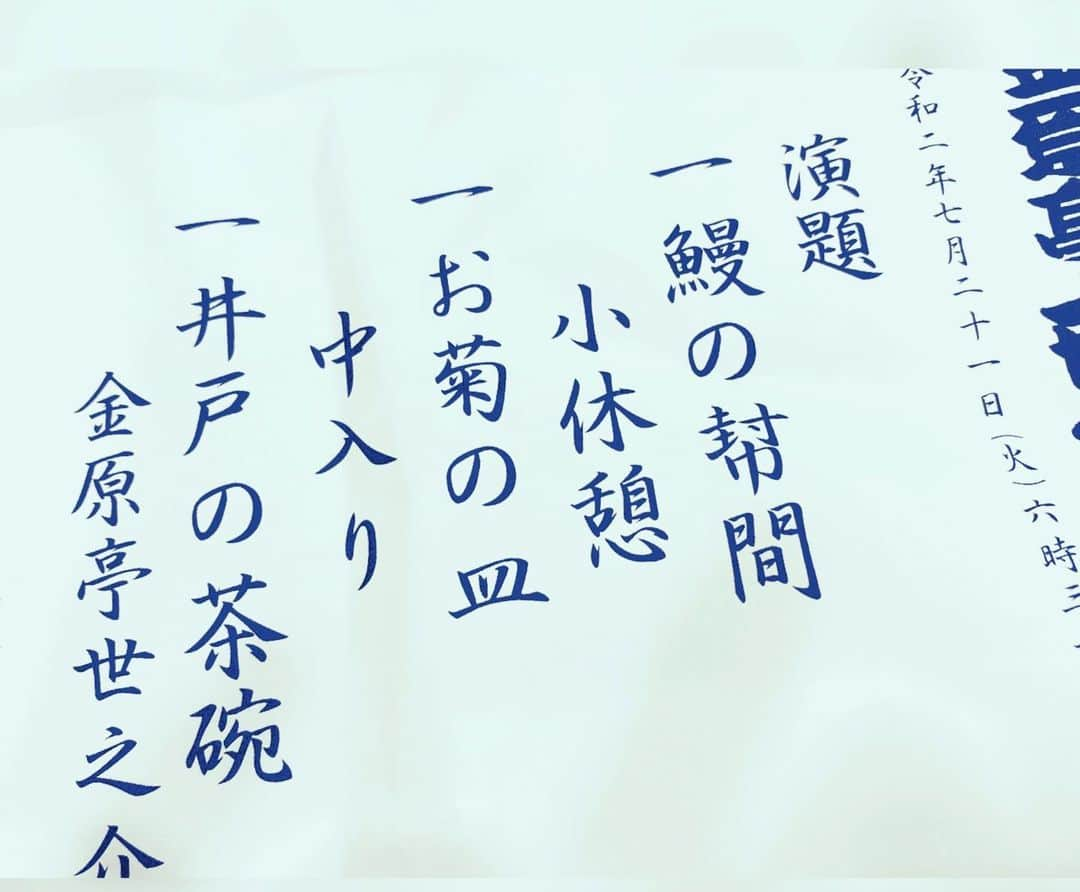 令和二年七月二十一日(火)六時三
演題
一 鰻の幇間
小休憩
一 お菊の皿
中入り
一 井戸の茶碗
金原亭世之介